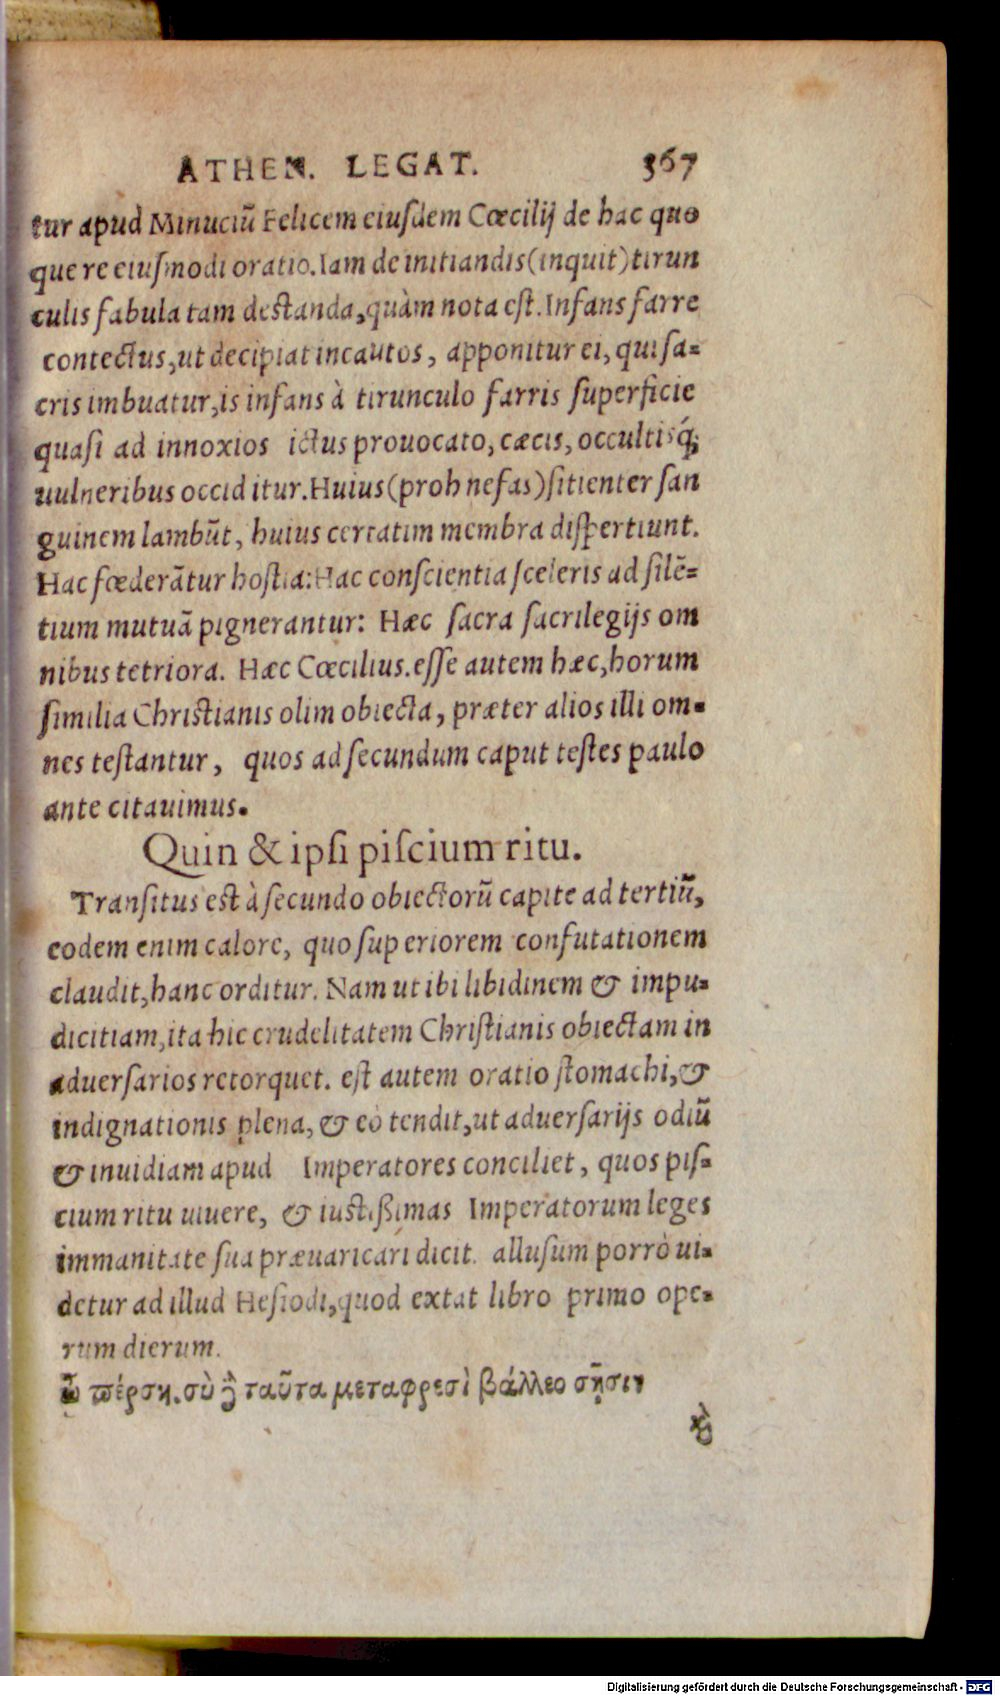 ATHEN. LEGAT. 367
tur apud Minuciũ Felicem eiuſdem Cœcilij de hac quo
que re eiuſmodi oratio. Iam de initiandis (inquit) tirun
culis fabula tam destanda, quàm nota eſt. Infans farre
contectus, ut decipiat incautos, apponitur ei, qui ſa-
cris imbuatur, is infans à tirunculo farris ſuperficie
quaſi ad innoxios ictus prouocato, cæcis, occultisq́;
uulneribus occiditur. Huius (proh nefas) ſitienter ſan
guinem lambũt, huius certatim membra diſpertiunt.
Hac fœderãtur hoſtia: Hac conſcientia ſceleris ad ſilẽ-
tium mutuã pignerantur: Hæc ſacra ſacrilegijs om
nibus tetriora. Hæc Cœcilius. eſſe autem hæc, horum
ſimilia Chriſtianis olim obiecta, præter alios illi om-
nes teſtantur, quos ad ſecundum caput teſtes paulo
ante citauimus.
Quin & ipſi piſcium ritu.
Tranſitus est à ſecundo obiectorũ capite ad tertiũ,
eodem enim calore, quo ſuperiorem confutationem
claudit, hanc orditur. Nam ut ibi libidinem & impu-
dicitiam, ita hic crudelitatem Chriſtianis obiectam in
aduerſarios retorquet. eſt autem oratio ſtomachi, &
indignationis plena, & eò tendit, ut aduerſarijs odiũ
& inuidiam apud Imperatores conciliet, quos piſ-
cium ritu uiuere, & iustißimas Imperatorum leges
immanitate ſua præuaricari dicit. alluſum porrò ui-
detur ad illud Heſiodi, quod extat libro primo ope-
rum dierum.
ὦ πέρση. σὺ δ̓ ταῦτα μεταφρεσὶ βάλλεο σῇσιν
κὶ